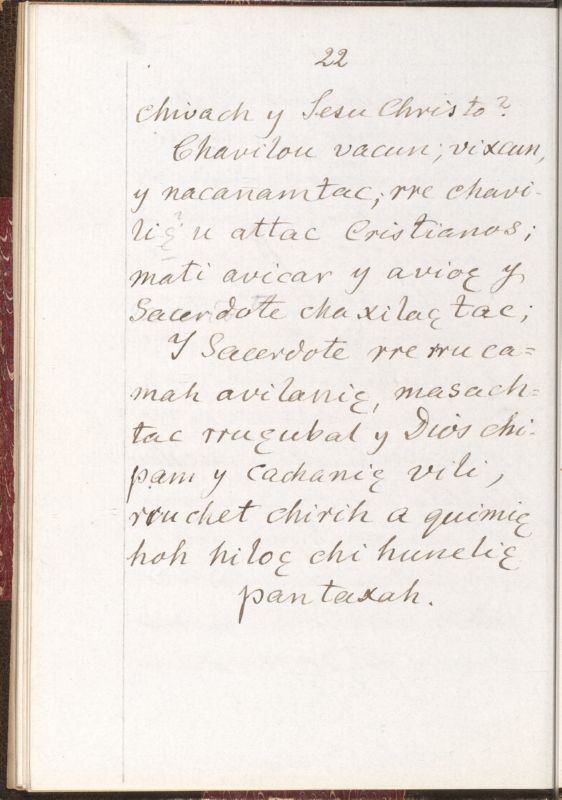 22
chivach y Jesu Christo?
Chavilou vacun, vixcun,
y nacanamtac; rre chavi-
liꜫ? u attac Cristianos;
mati avicar y avioꜫ y
Sacerdote chaxilaꜫtac;
Y Sacerdote rre rruca=
mah avilaniꜫ, masach=
tac rruꜫubal y Dios chi-
pam y cachaniꜫ vili,
rruchet chirih a quimiꜫ
hoh hiloꜫ chi huneliꜫ
pantaxah.